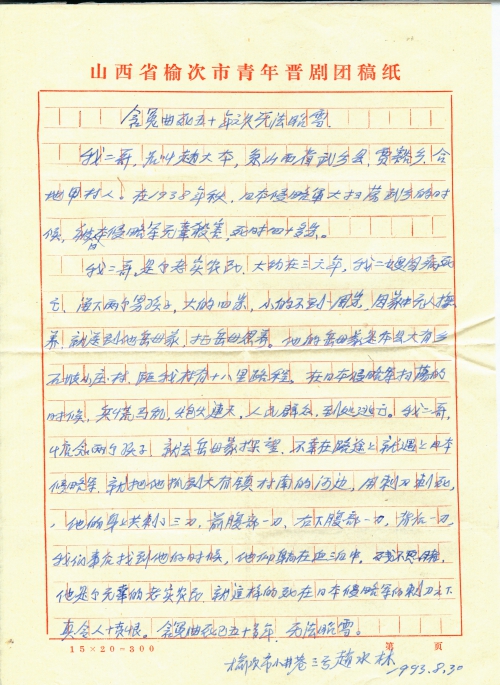 山西省榆次市青年晋剧团稿纸
含冤曲死五十年次无法昭雪
我二哥，名叫赵大本，系山西省武乡县，贾豁乡合
地甲村人。在1938年秋，日本侵略军大扫荡到乡的时
候，被日本侵略军无辜殺害，死时四十多岁。
我二哥是个老实农民，大约在三六年，我二嫂因病死
亡，留下两个男孩子，大的四岁，小的不到一周岁，因家中无人抚
养，就送到他岳母家，扵岳母恩养。他的岳母家是本县大有乡
石坡小庄村，距我村有十八里路程。在日本侵略军扫荡的
时候，兵慌马乱，炮火连天，人民群众，到处逃亡。我二哥，
惦念两个孩子，就去岳母家探望，不幸在路途上就遇上日本
侵略军，就把他抓到大有镇村南的河边，用刺刀刺死，
，他的身上共刺了三刀，前腹部一刀，右下腹部一刀，背后一刀，
我们事后找到他的时候，他仰躺在血泊中，
他是个无辜的老实农民，就这样的死在日本侵略军的刺刀之下
真令人十愤恨。含冤曲死已五十多年，无法昭雪。
15×20=300 第 页
榆次市小井巷三号赵水林
1993.8.30